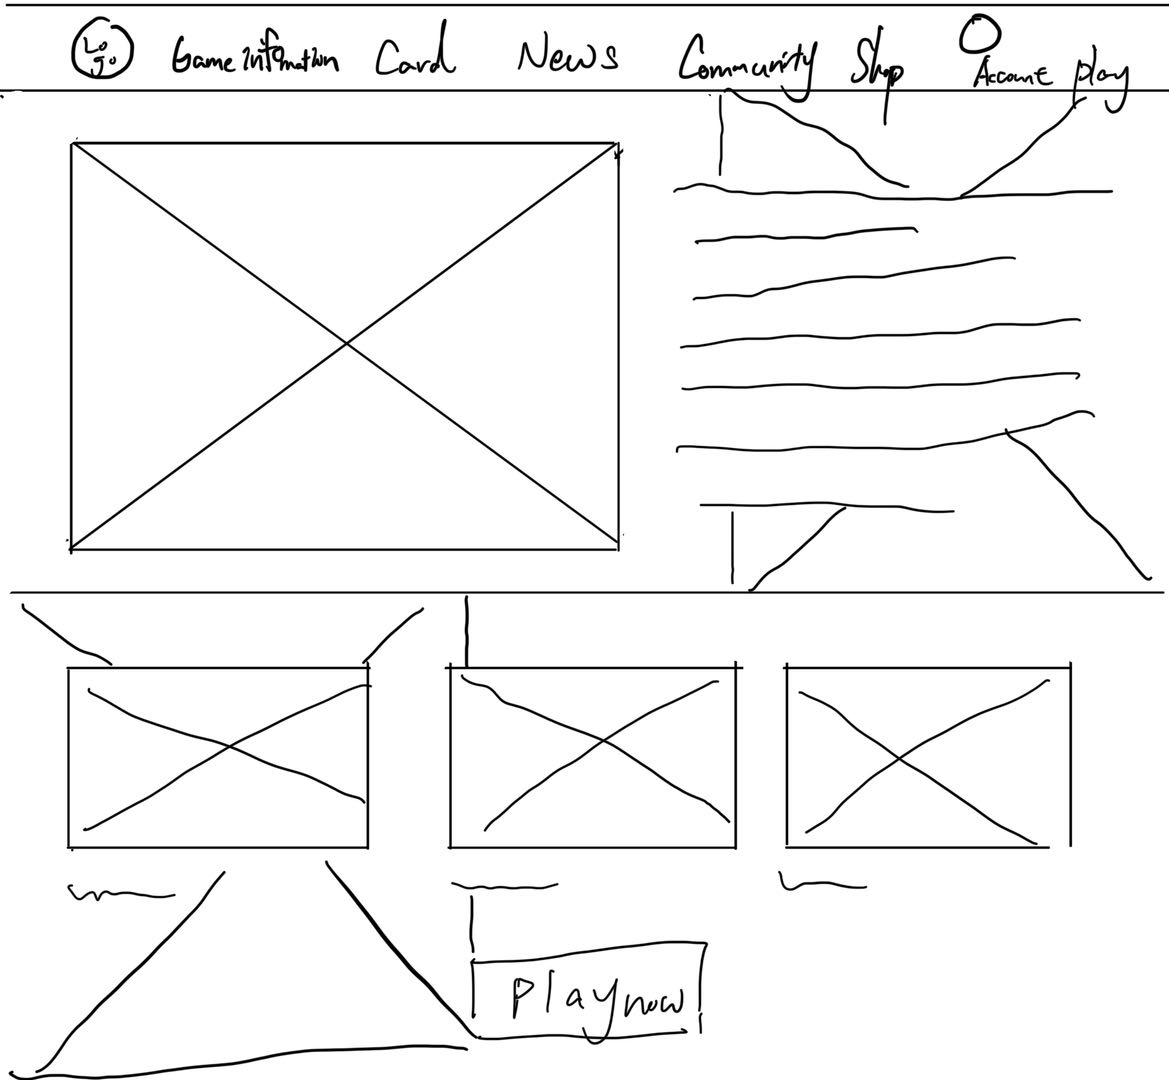 Logo Game Information Card News Community Shop Account play
Play now